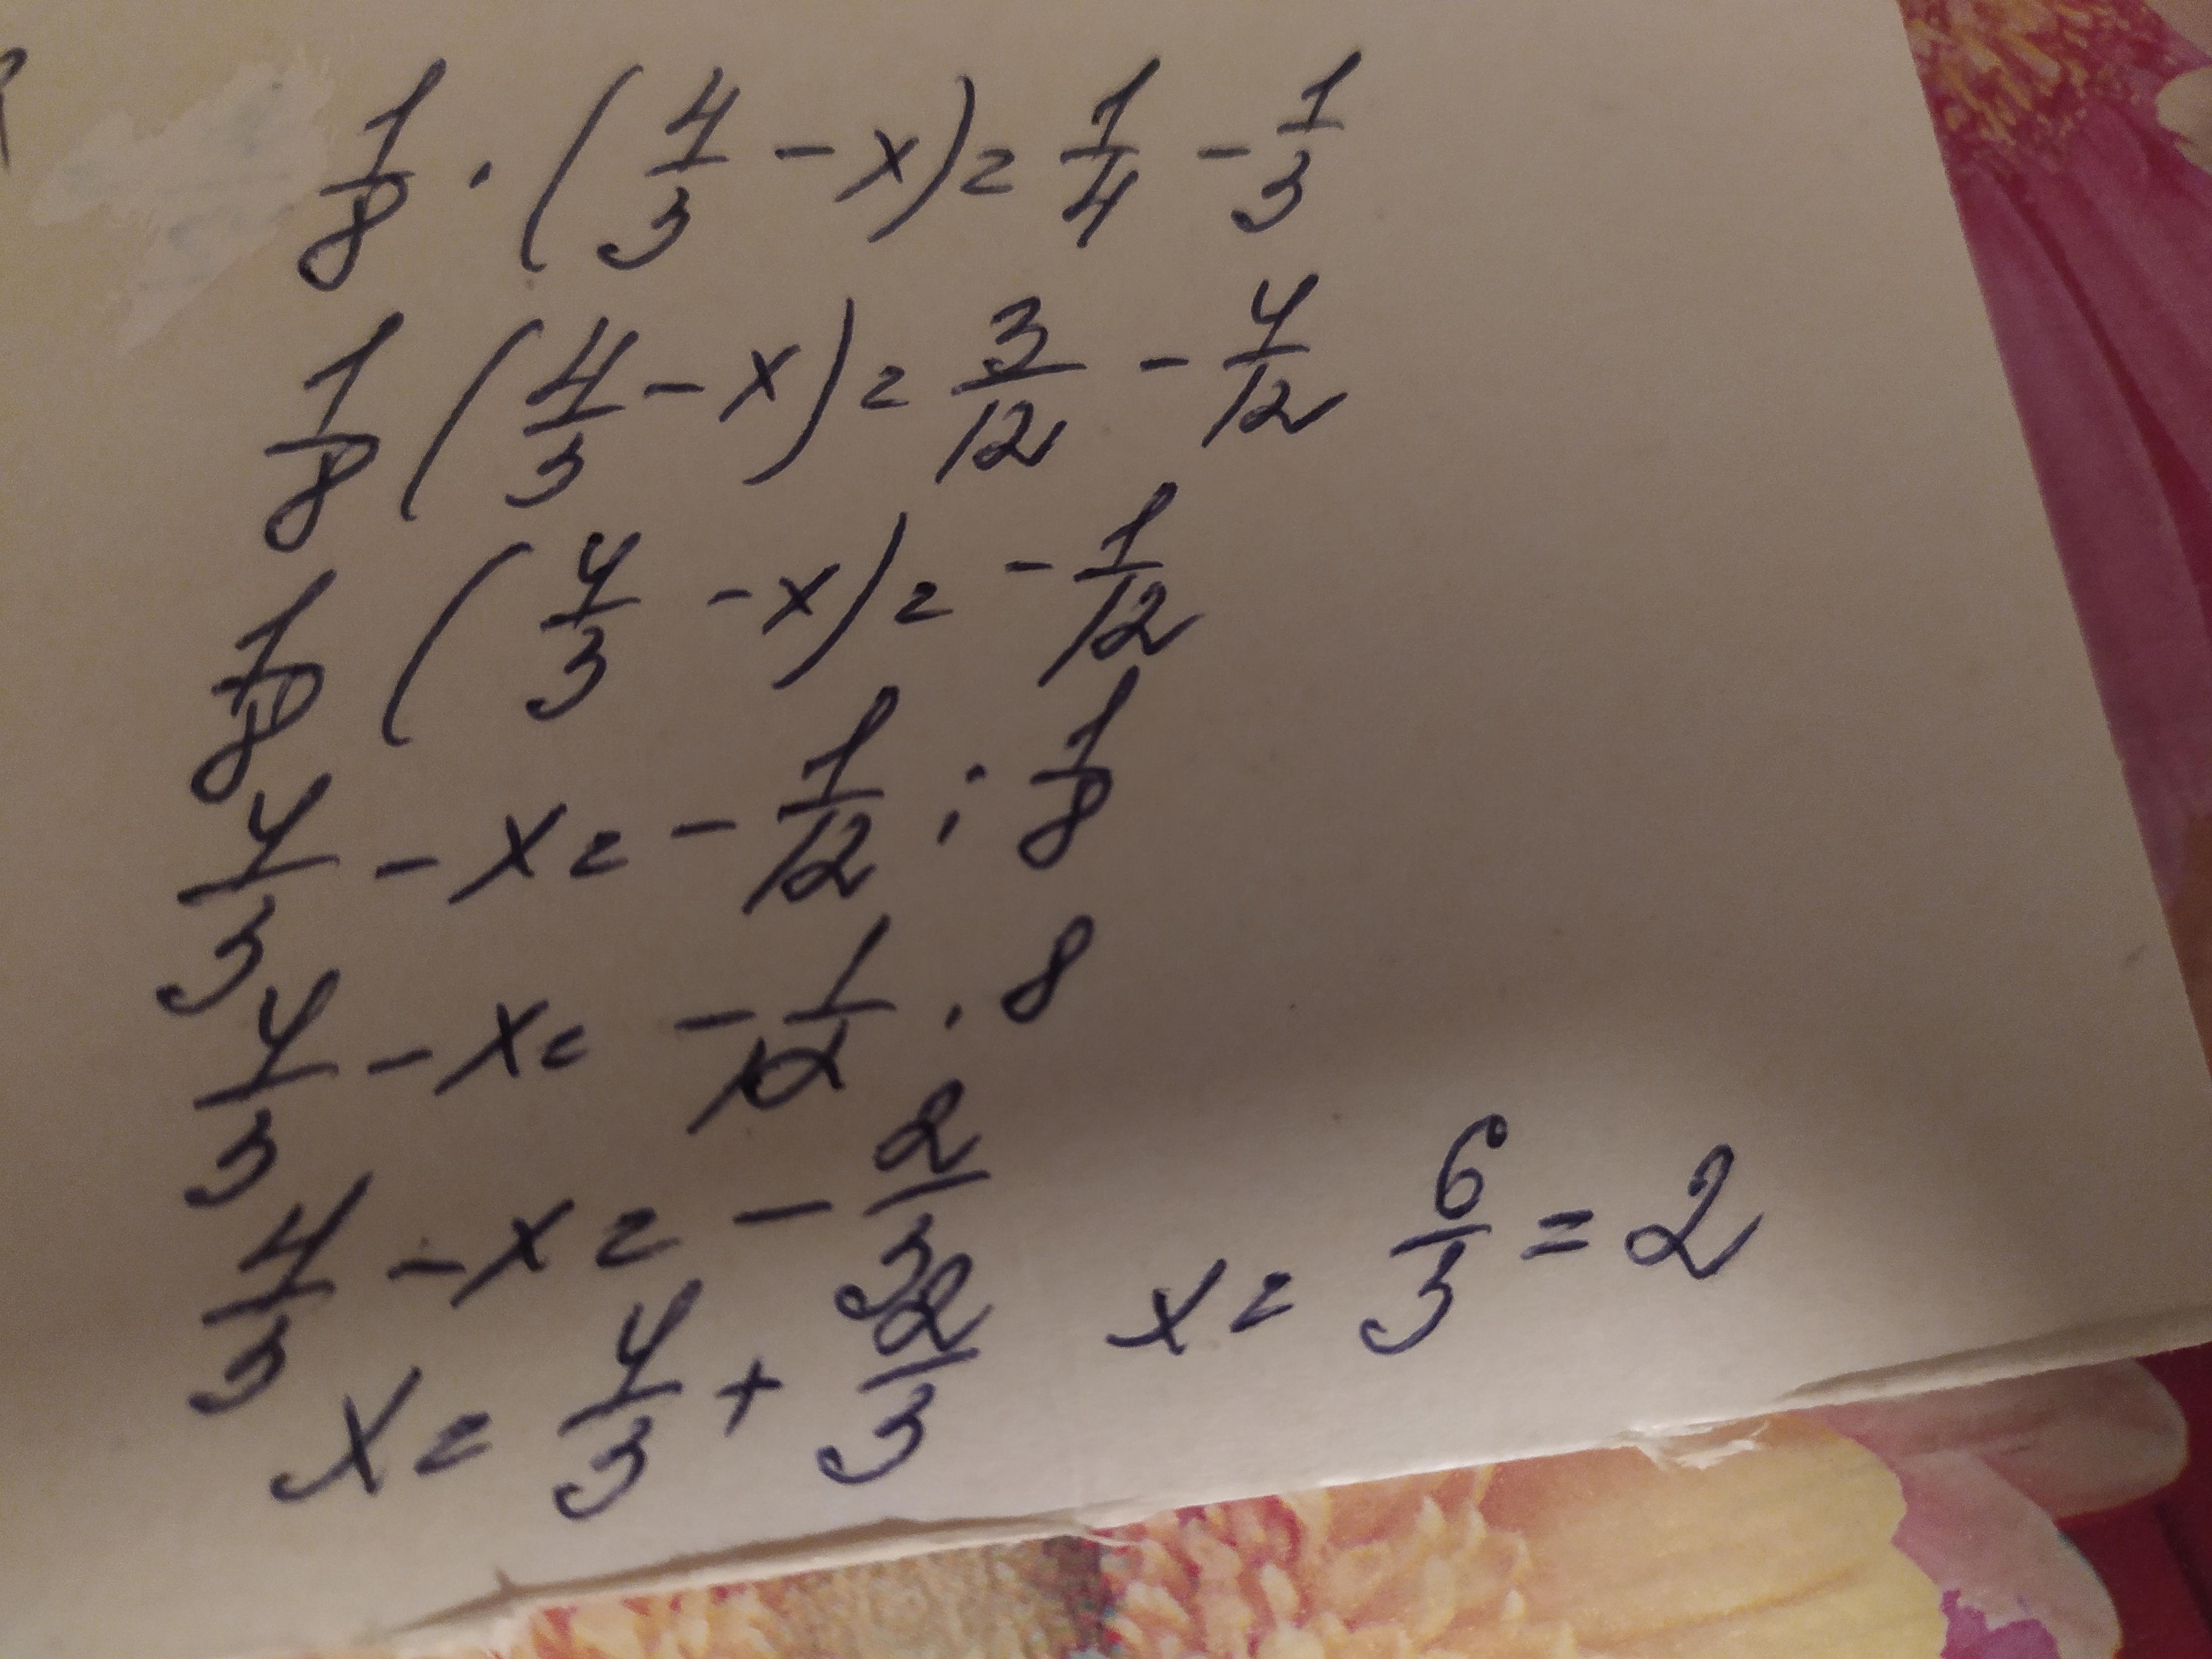 1/8 · (4/3 - x) = 1/4 - 1/3
1/8 (4/3 - x) = 3/12 - 4/12
1/8 (4/3 - x) = - 1/12
4/3 - x = - 1/12 : 1/8
4/3 - x = - 1/12 · 8
4/3 - x = - 2/3
x = 4/3 + 2/3
x = 6/3 = 2